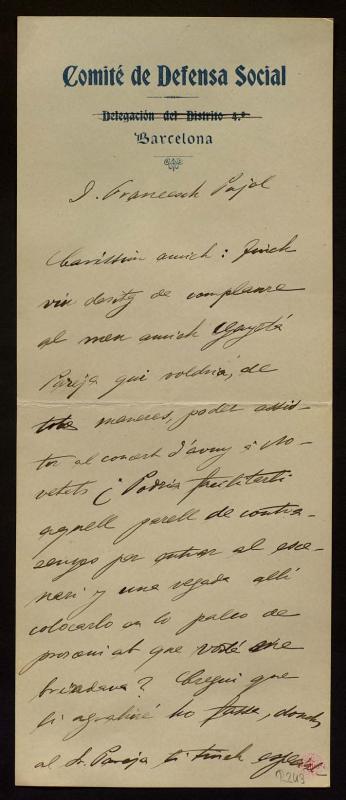 Comité de Defensa Social
Delegación del Distrito 4.º
Barcelona
D. Francesch Pujol
Caríssim amich: Tinch
viu desitg de complaure
al meu amich Gayetá
Pareja qui voldria, de
totas maneras, poder assis-
tir al concert d'avuy á No-
vetats ¿Podria facilitarli
aquell parell de contra-
senyas per entrar al esce-
nari y una vegada allí
colocarlo en lo palco de
prosceni at que vosté me
brindava? Cregui que
li agrahiré ho fassa, donchs
al Sr. Pareja li tinch especial